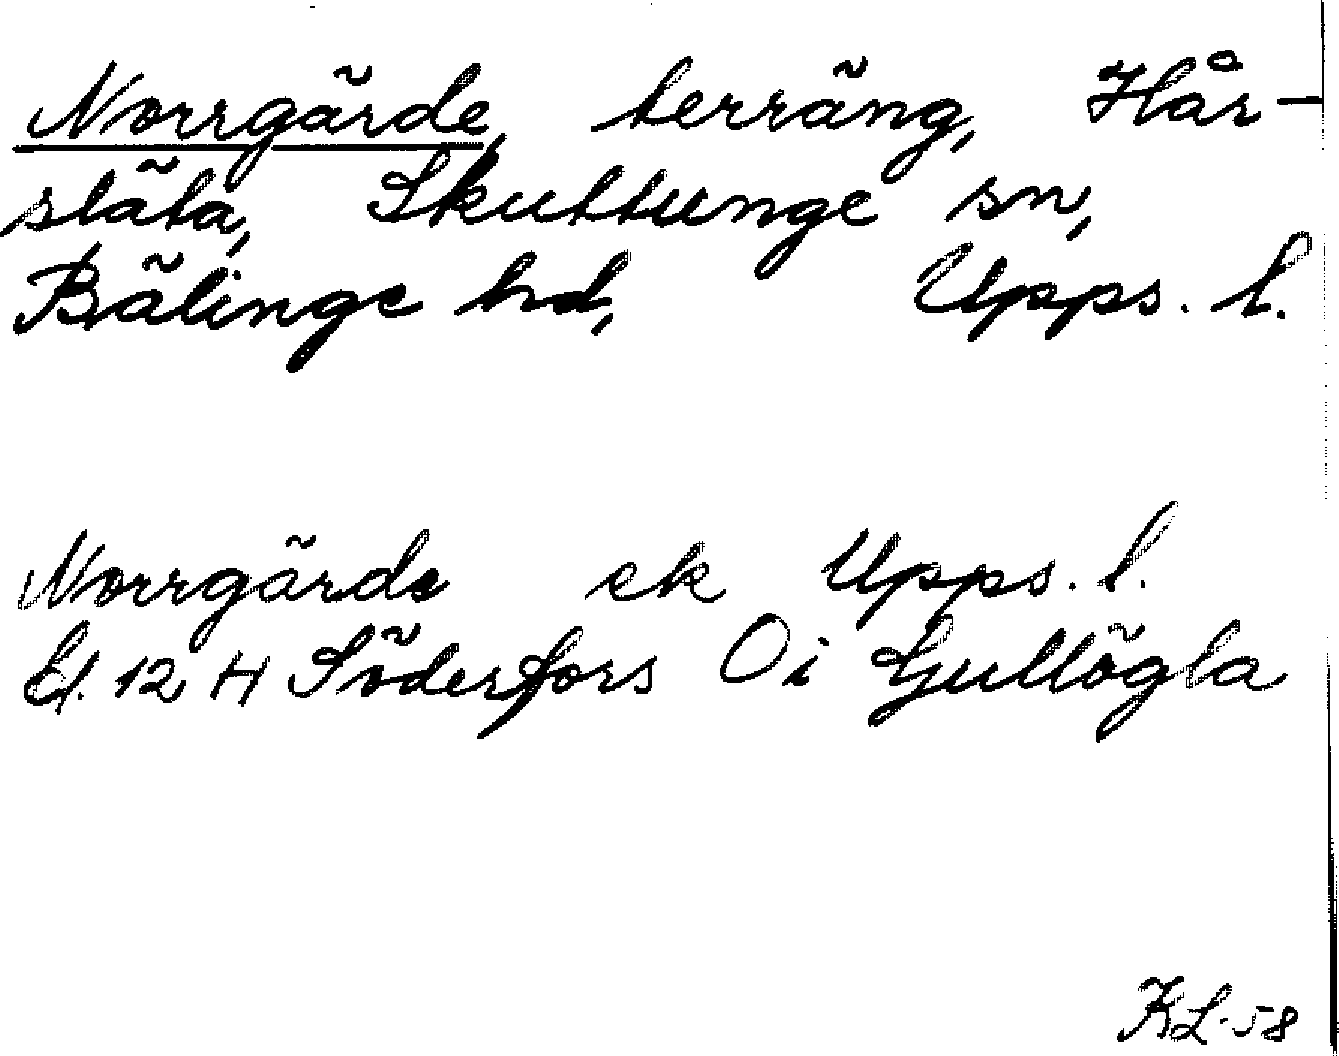 Norrgärde, terräng, Hår-
släta, Skuttunge sn,
Bälinge hd, Upps. l.
Norrgärde ek Upps. l.
Ef. 12 H Söderfors Oi Gjullögla
KL-58